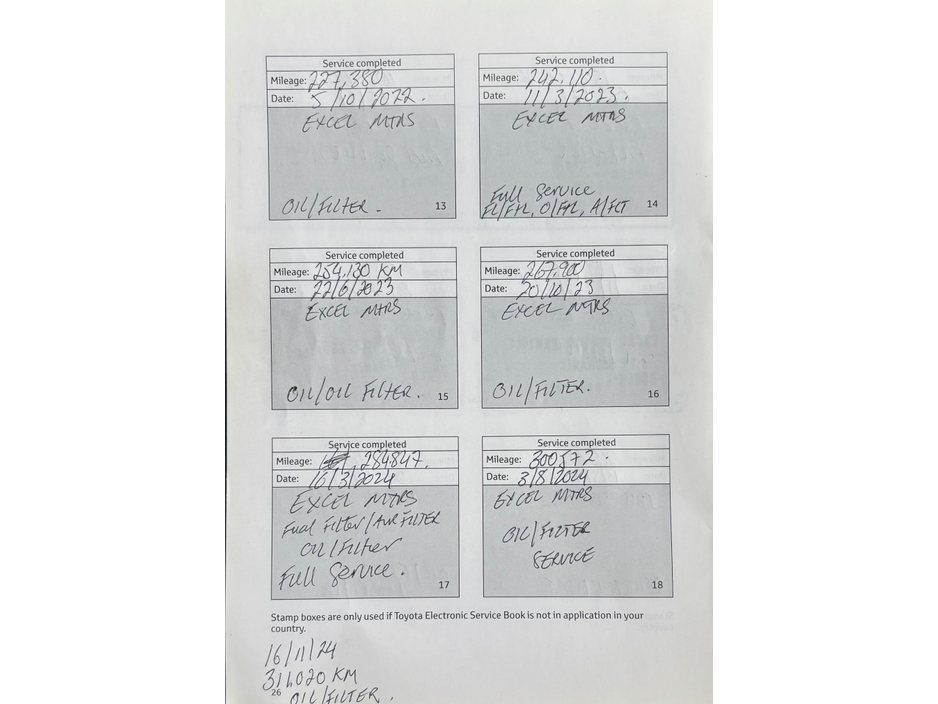 Service completed
Mileage: 227,380
Date: 5/10/2022.
EXCEL MTRS
OIL/FILTER.
13
Service completed
Mileage: 242,110.
Date: 11/3/2023.
EXCEL MTRS
Full Service
FL/FTL, O/FTL, A/FLT
14
Service completed
Mileage: 254,130 KM
Date: 22/6/2023
EXCEL MTRS
OIL/OIL FILTER.
15
Service completed
Mileage: 267,900
Date: 20/10/23
EXCEL MTRS
OIL/FILTER.
16
Service completed
Mileage: 284847.
Date: 16/3/2024
EXCEL MTRS
Fual Filter/AIR FILTER
OIL/Filter
Full Service.
17
Service completed
Mileage: 300572.
Date: 3/8/2024
EXCEL MTRS
OIL/FILTER
SERVICE
18
Stamp boxes are only used if Toyota Electronic Service Book is not in application in your
country.
16/11/24
311,020 KM
26
OIL/FILTER.